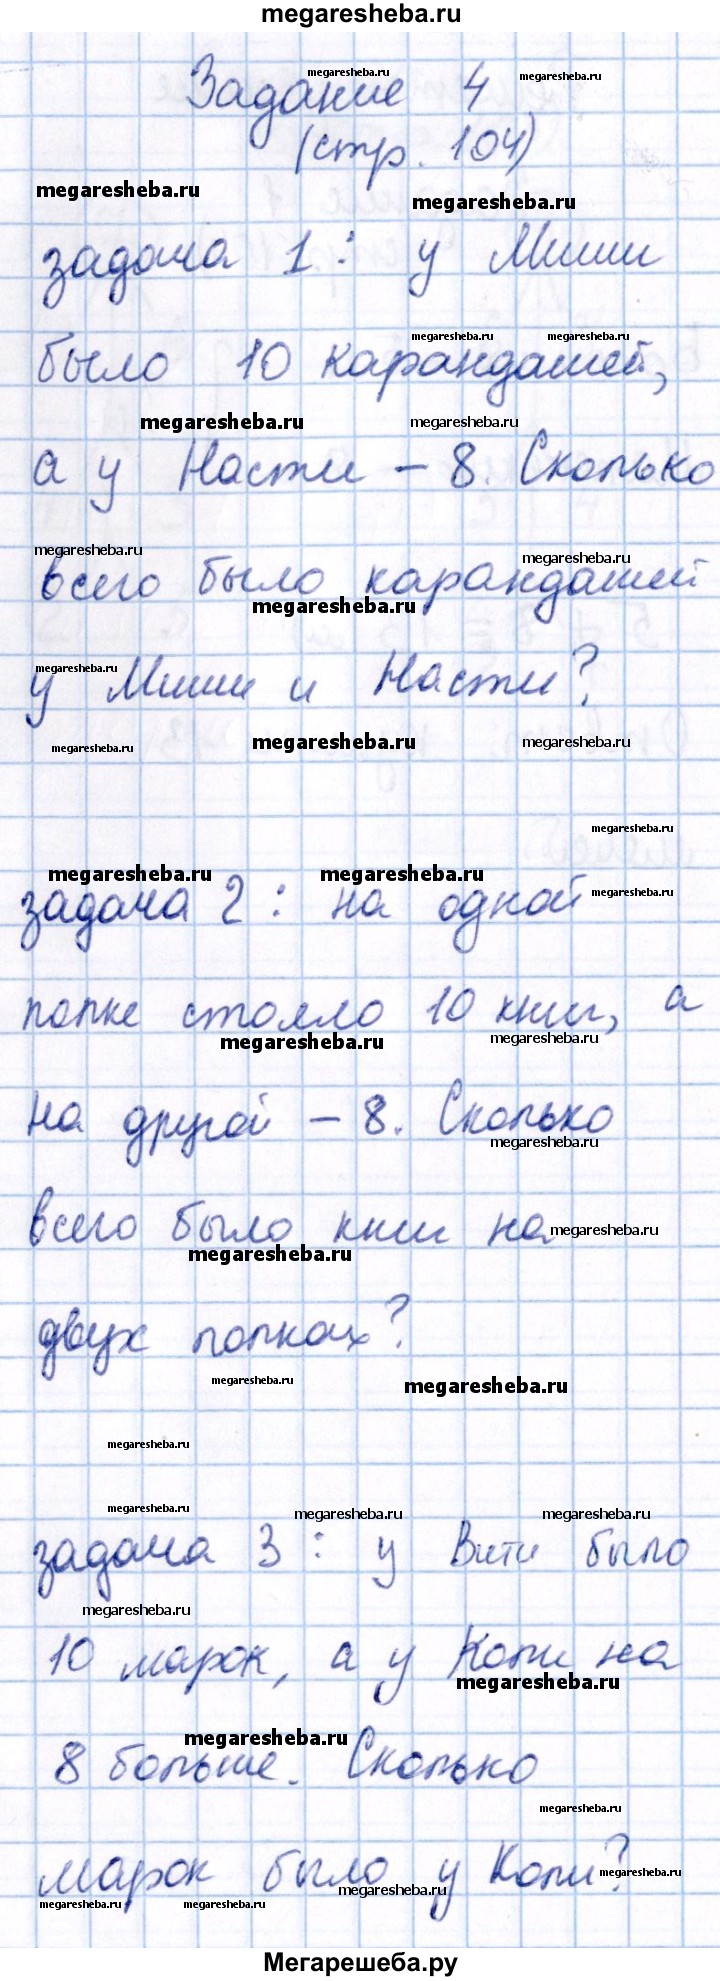 megaresheba.ru
Задание 4
(стр. 104)
задача 1: у Миши
было 10 карандашей,
а у Насти – 8. Сколько
всего было карандашей
у Миши и Насти?
задача 2: на одной
полке стояло 10 книг, а
на другой – 8. Сколько
всего было книг на
двух полках?
задача 3: у Вити было
10 марок, а у Коли на
8 больше. Сколько
марок было у Коли?
Мегарешеба.ру